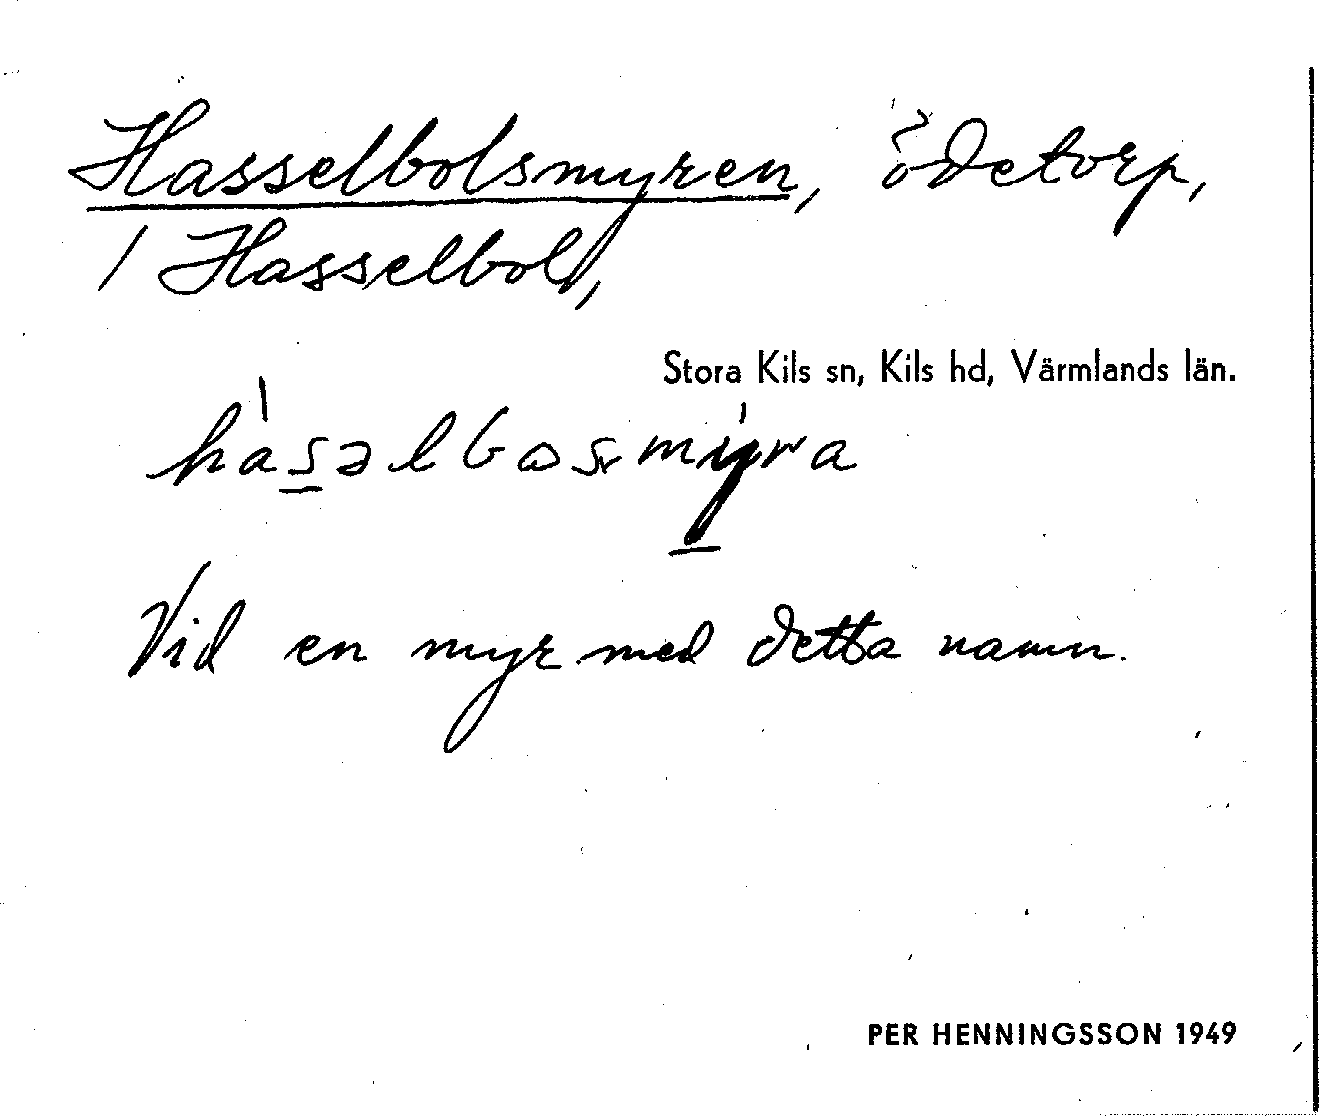 Hasselbolsmyren, ödetorp,
/ Hasselbol,
Stora Kils sn, Kils hd, Värmlands län.
hàsəlbωsmýra
Vid en myr med detta namn.
PER HENNINGSSON 1949